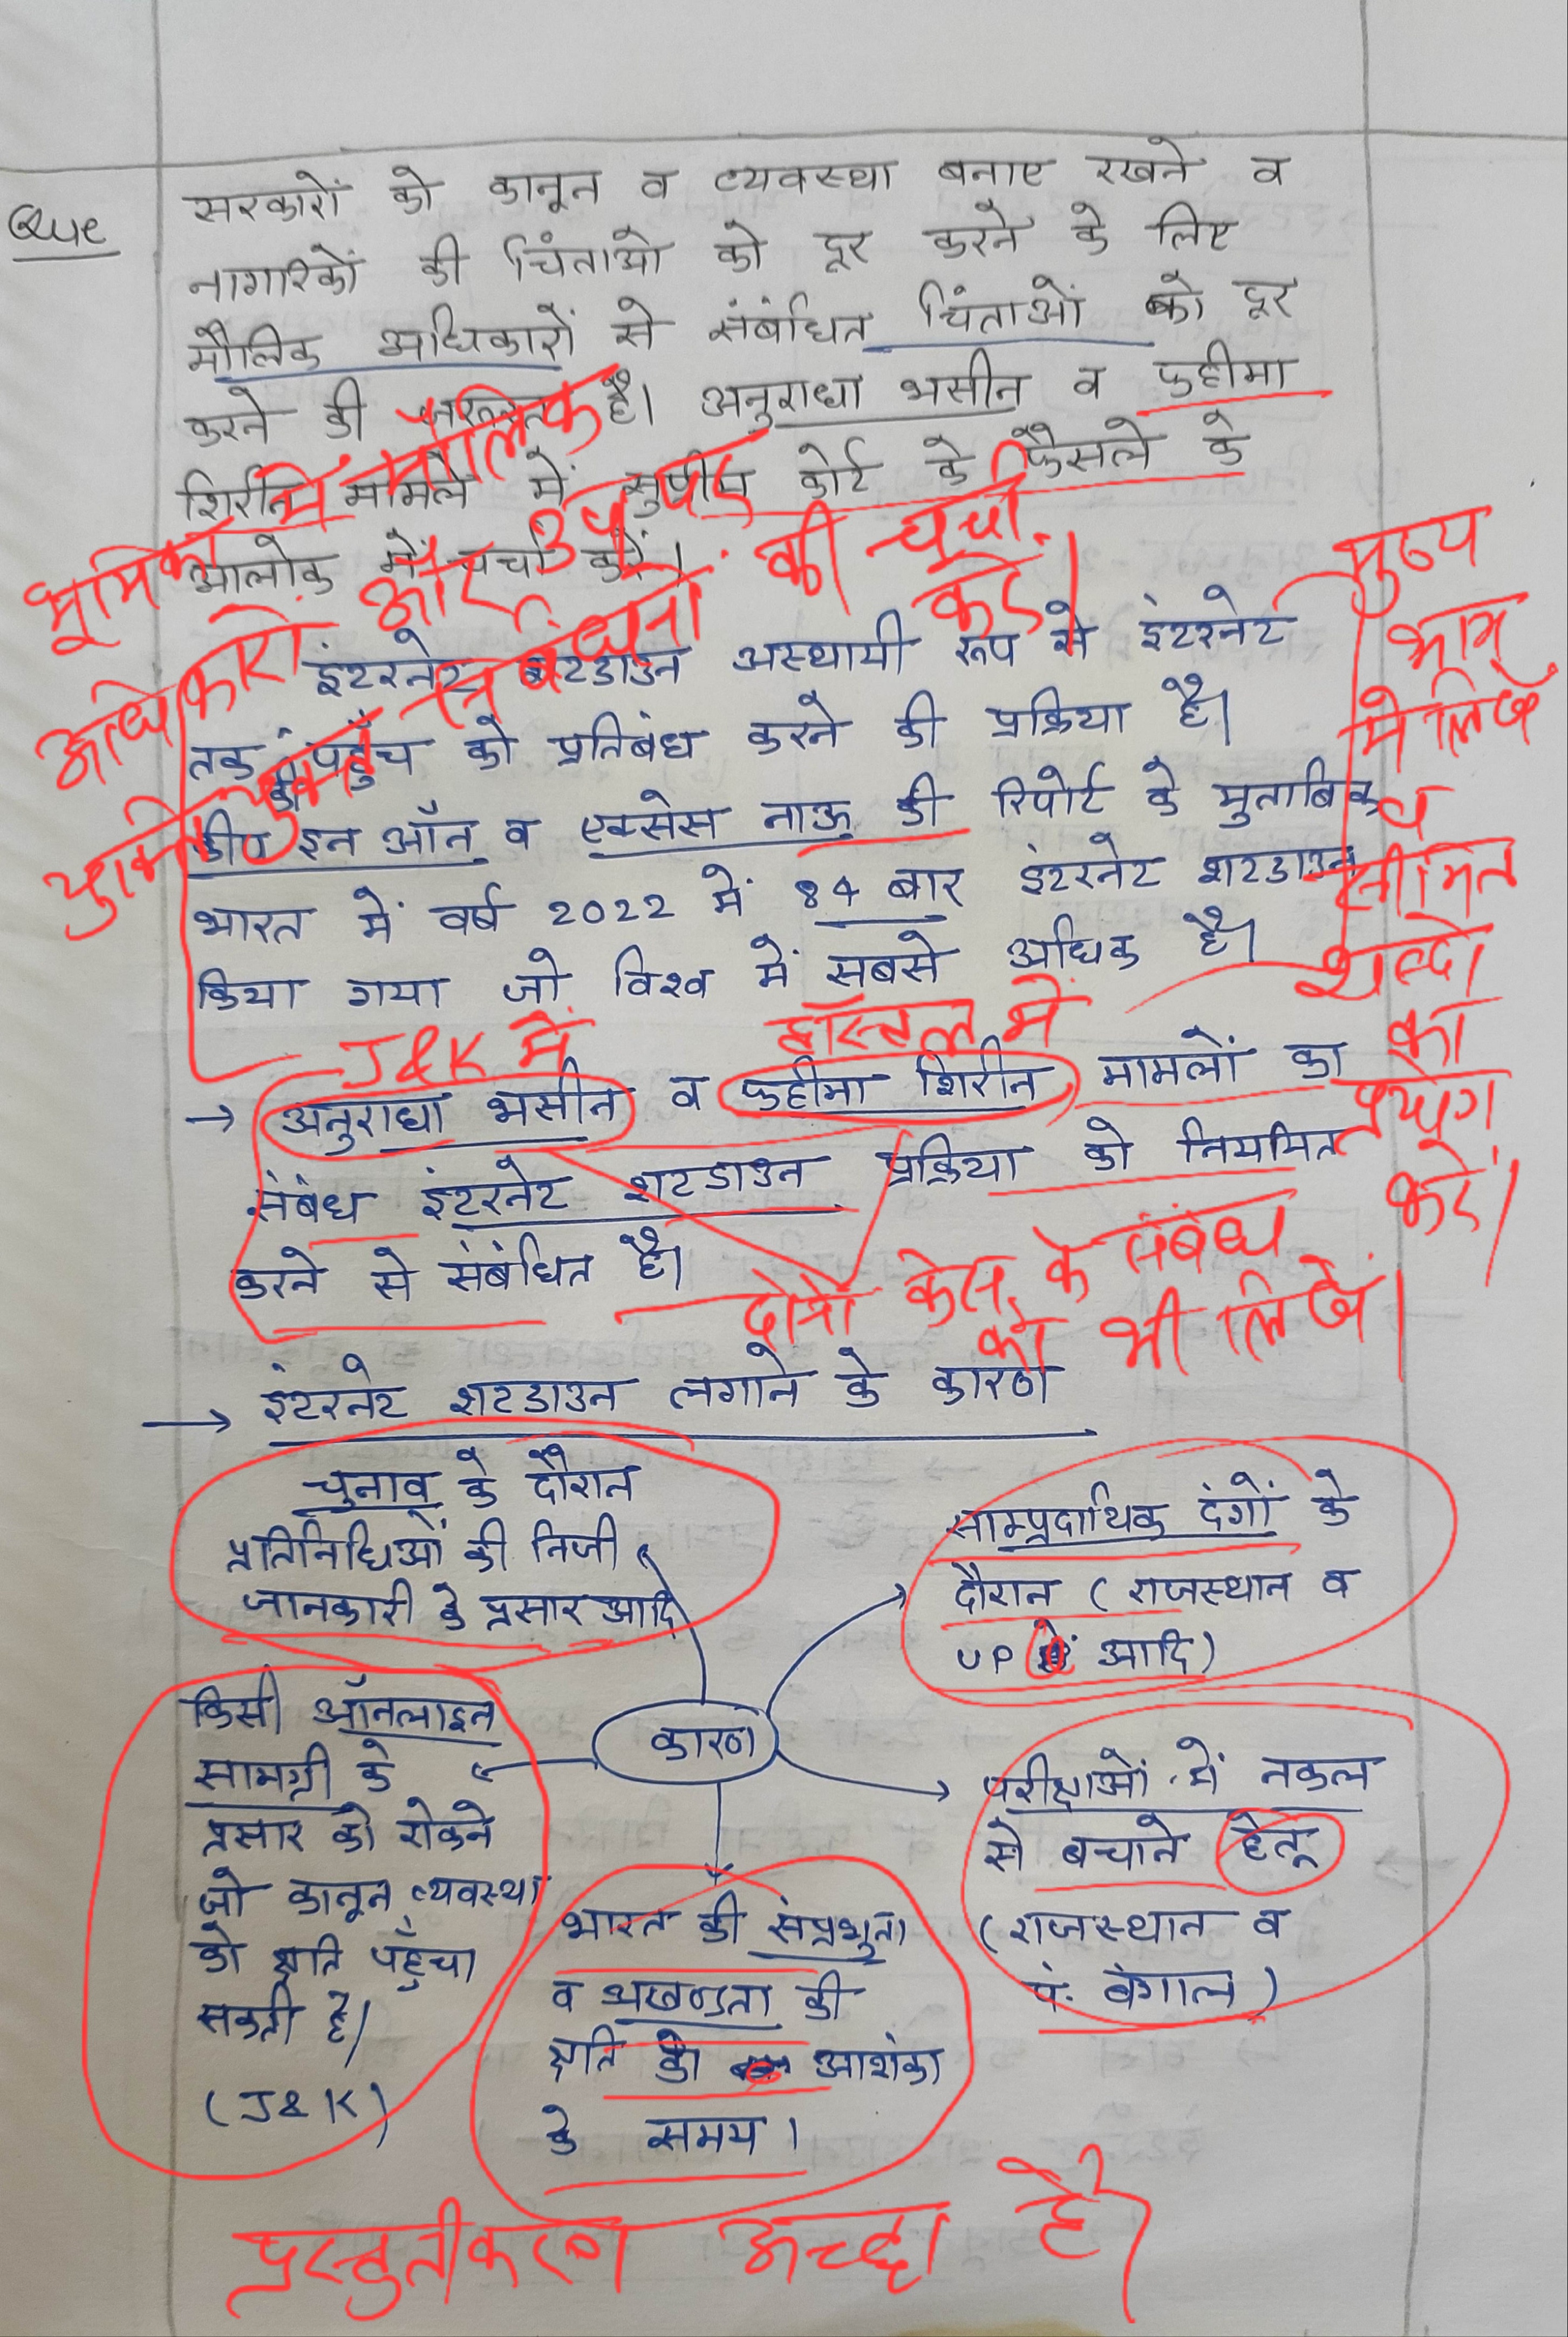 Que सरकारों को कानून व व्यवस्था बनाए रखने व
नागरिकों की चिंताओ को दूर करने के लिए
मौलिक अधिकारों से संबंधित चिंताओं को दूर
करने की जरूरत है। अनुराधा भसीन व फहीमा
शिरीन मामले में सुप्रीम कोर्ट के फैसले के
आलोक में चर्चा करें।
भूमिका में मौलिक
अधिकारो और उन पर
युक्तियुक्त निर्बंधनो की चर्चा
करें।
इंटरनेट शटडाउन अस्थायी रूप से इंटरनेट
तक पहुँच को प्रतिबंध करने की प्रक्रिया है।
कीप इन ऑन व एक्सेस नाऊ की रिपोर्ट के मुताबिक
भारत में वर्ष 2022 में 84 बार इंटरनेट शटडाउन
किया गया जो विश्व में सबसे अधिक है।
मुख्य
भाग
मे लिखें
व
सीमित
शब्दो
का
प्रयोग
करें।
J&K में
हॉस्टल में
→ अनुराधा भसीन व फहीमा शिरीन मामलों का
संबंध इंटरनेट शटडाउन प्रक्रिया को नियमित
करने से संबंधित है।
दोनो केस के संबंध
को भी लिखें।
→ इंटरनेट शटडाउन लगाने के कारण
चुनाव के दौरान
प्रतिनिधिओं की निजी
जानकारी के प्रसार आदि
साम्प्रदायिक दंगों के
दौरान (राजस्थान व
UP आदि)
कारण
किसी ऑनलाइन
सामग्री के
प्रसार को रोकने
जो कानून व्यवस्था
को क्षति पहुँचा
सकती है।
(J&K)
परीक्षाओं में नकल
से बचाने हेतू
(राजस्थान व
पं. बंगाल)
भारत की संप्रभुता
व अखण्डता की
क्षति की आशंका
के समय।
प्रस्तुतीकरण अच्छा है।